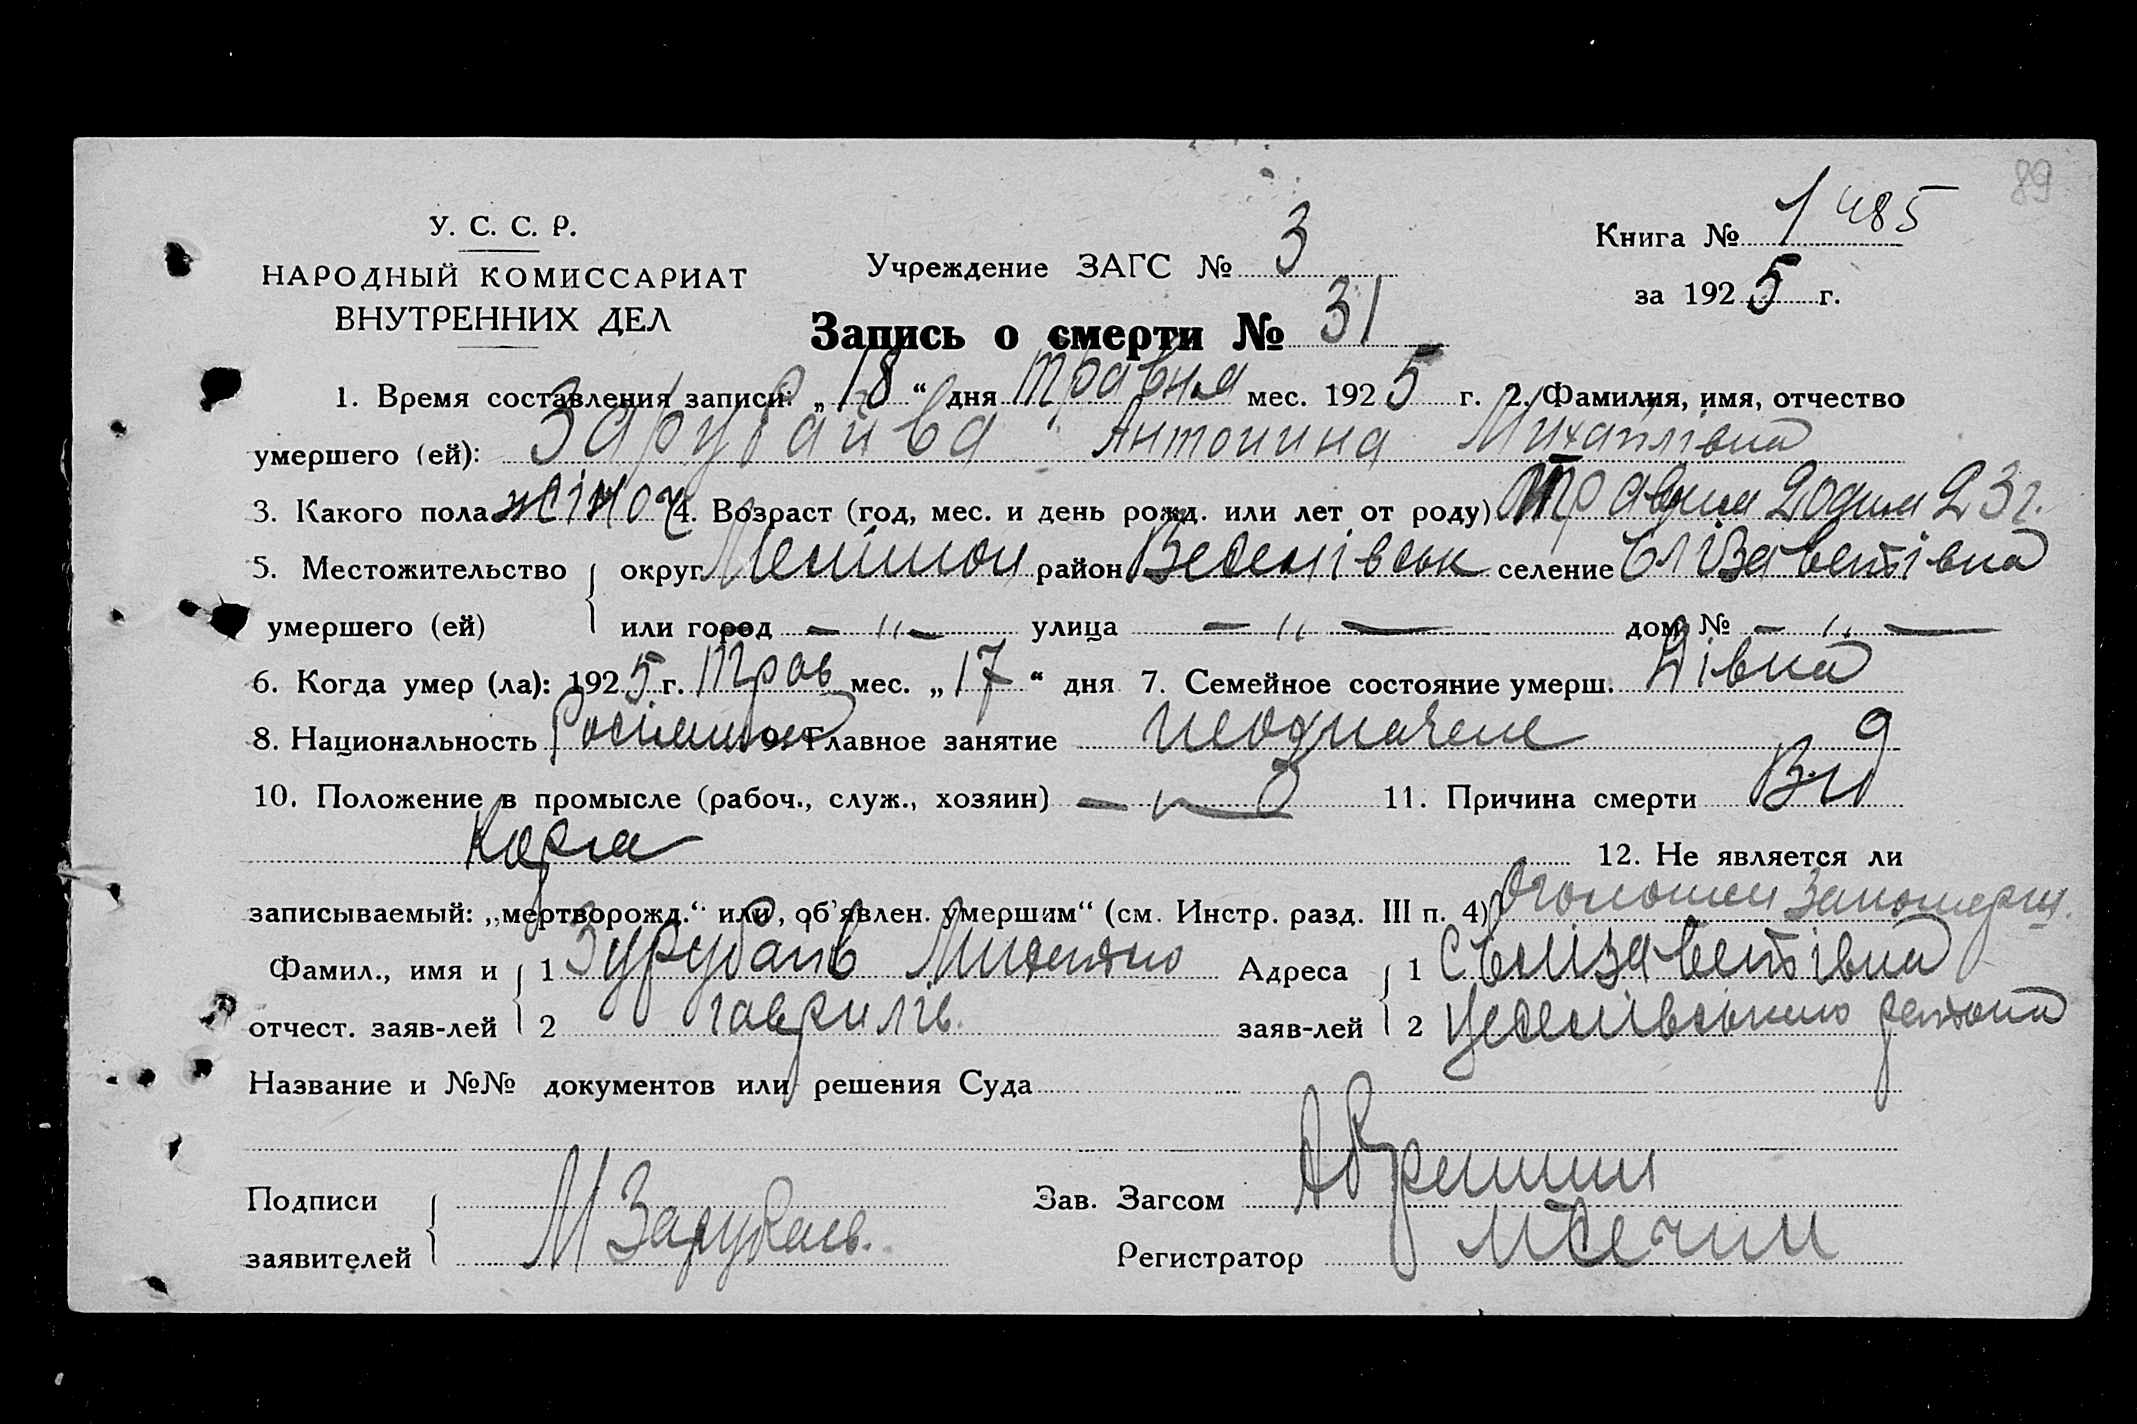 89
У. С. С. Р.
НАРОДНЫЙ КОМИССАРИАТ
ВНУТРЕННИХ ДЕЛ
Учреждение ЗАГС № 3
Книга № 1 485
за 1925 г.
Запись о смерти № 31
1. Время составления записи: „18“ дня травня мес. 1925 г. 2. Фамилия, имя, отчество
умершего (ей): Зарубайва Антонина Михайлівна
3. Какого пола жіноч 4. Возраст (год, мес. и день рожд. или лет от роду) Травня 23 г.
5. Местожительство округ район Веселівськ селение Єлізаветівка
умершего (ей) или город — „ — улица — „ — дом № — „ —
6. Когда умер (ла): 1925 г. Трав мес. „17“ дня 7. Семейное состояние умерш. Дівка
8. Национальность 9. Главное занятие
10. Положение в промысле (рабоч., служ., хозяин) 11. Причина смерти Від
Корга
12. Не является ли
записываемый: „мертворожд.“ или „об’явлен. умершим“ (см. Инстр. разд. III п. 4)
Фамил., имя и 1 Зурубаїв Адреса 1 с Єлізаветівка
отчест. заяв-лей 2 гаврилів. заяв-лей 2 района
Название и №№ документов или решения Суда
Подписи Зав. Загсом
М Зарубаев.
заявителей Регистратор